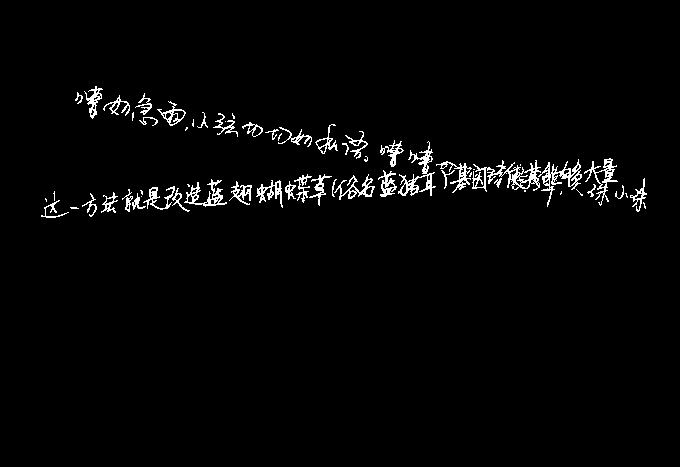 嘈如急雨,小弦切切如私语。嘈嘈
这一方法就是改造蓝翅蝴蝶草(俗名蓝猪耳)基因培能够大量